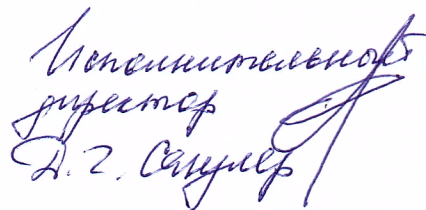 Исполнительный
директор
Д. Г. Сакулер